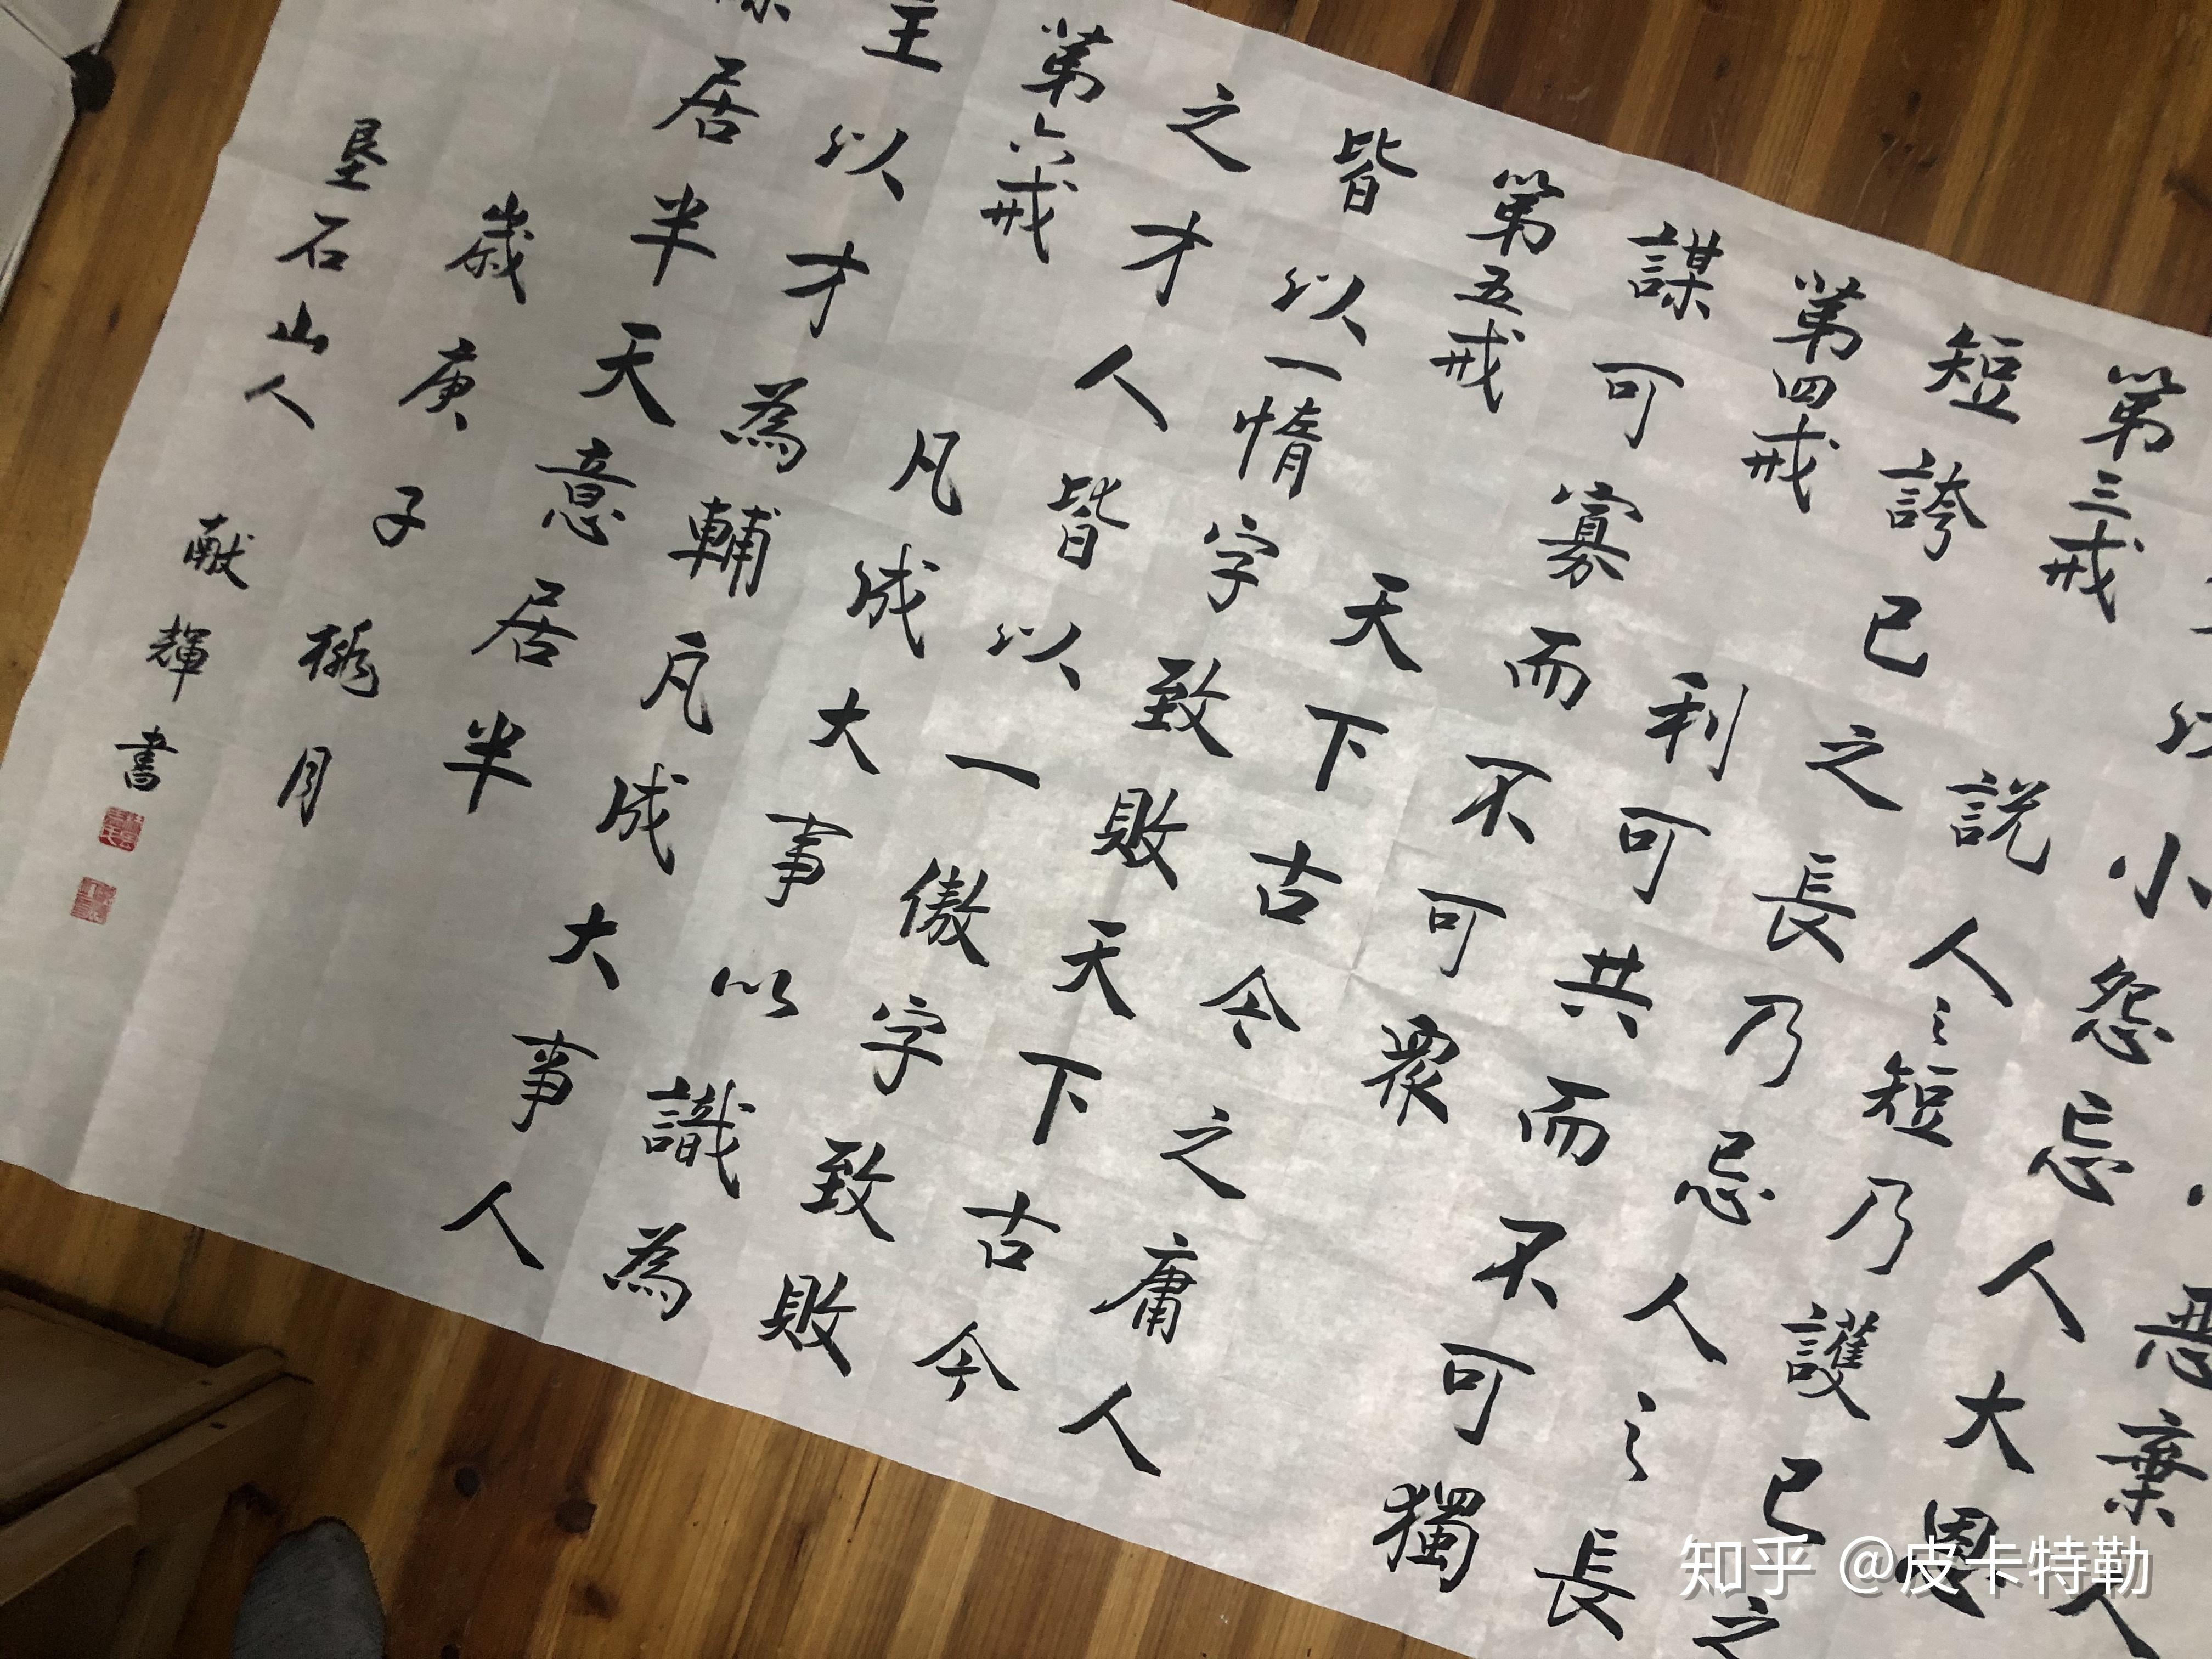 恶棄人
以小怨忘人大恩
第三戒 說人之短乃護己之
短誇己之長乃忌人之長
第四戒 利可共而不可獨
謀可寡而不可衆
第五戒 天下古今之庸人
皆以一惰字致敗天下古今
之才人皆以一傲字致敗
第六戒 凡成大事以識為
主以才為輔凡成大事人
居半天意居半
歲庚子桃月
垦石山人 献輝書
知乎 @皮卡特勒